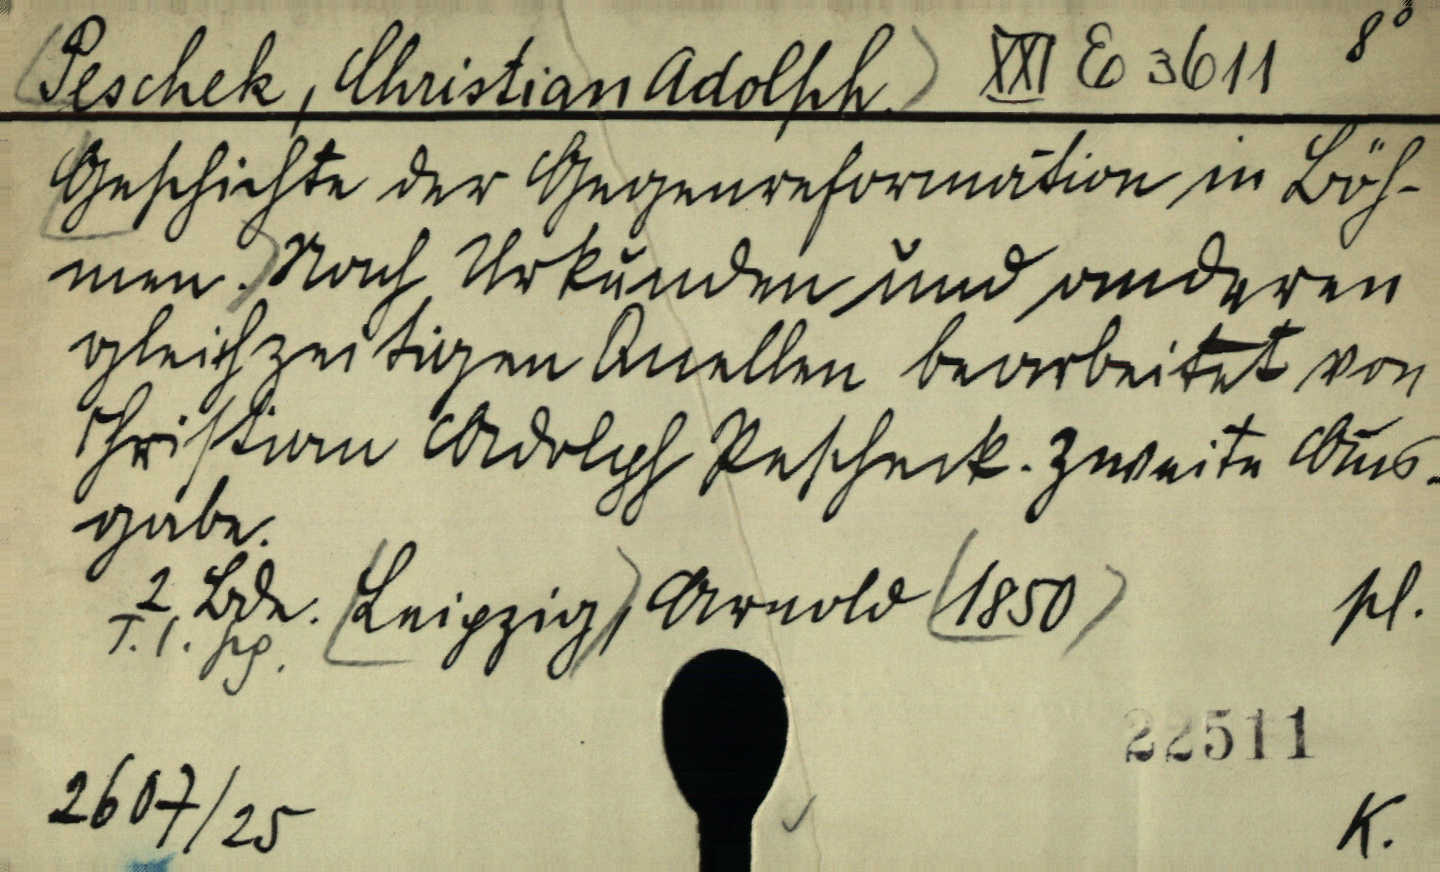 (Peschek, Christian Adolph.) XXI E 3611 8°
Geschichte der Gegenreformation in Böh-
men.) Nach Urkunden und anderen
gleichzeitigen Quellen bearbeitet von
Christian Adolph Pescheck. Zweite Aus-
gabe.
2 Bde. (Leipzig), Arnold (1850) pl.
T. 1.
22511
2607/25
K.